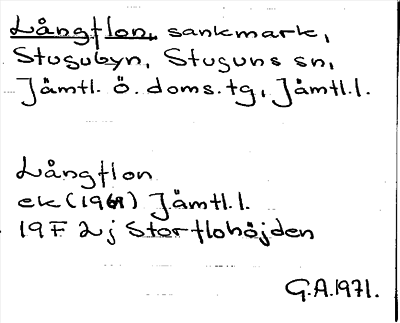 Långflon, sankmark,
Stugubyn, Stuguns sn,
Jämtl. ö. doms. tg, Jämtl. l.
Långflon
ek (1961) Jämtl. l.
19F 2j Storflohöjden
G.A. 1971.